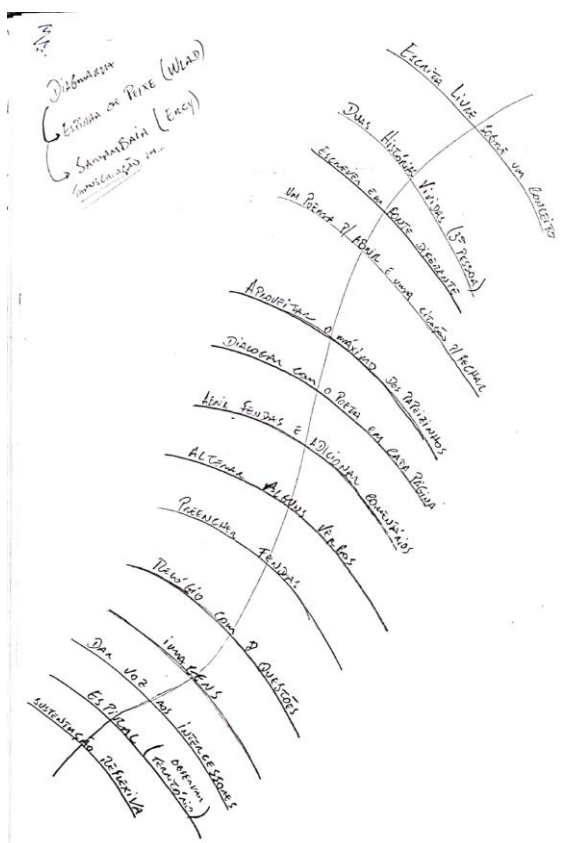 Diagrama
Espinha de Peixe (Wlad)
Samambaia (Ercy)
Transcriação em...
Escrita Livre sobre um conceito
Duas Histórias Vividas (3ª pessoa)
Escrever em fonte diferente
Um Poema p/ abrir e uma citação p/ fechar
Aproveitar o máximo dos papeizinhos
Dialogar com o Poeta em cada página
Abrir fendas e adicionar comentários
Alterar alguns verbos
Preencher fendas
Relógio com 8 questões
Imagens
Dar voz aos intercessores
Espiral (observar território)
Sustentação reflexiva